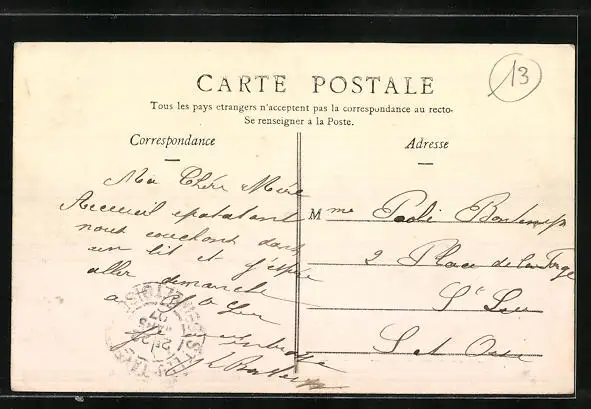 13
CARTE POSTALE
Tous les pays etrangers n'acceptent pas la correspondance au recto-
Se renseigner a la Poste.
Correspondance
Adresse
Ma Chère Mère
Accueil epatatant
nous couchons dans
un lit et j'espère
aller dimanche
a
Je
Mme Paoli Bontemps
2 Place de la Forge
St Leu
S et Oise
07